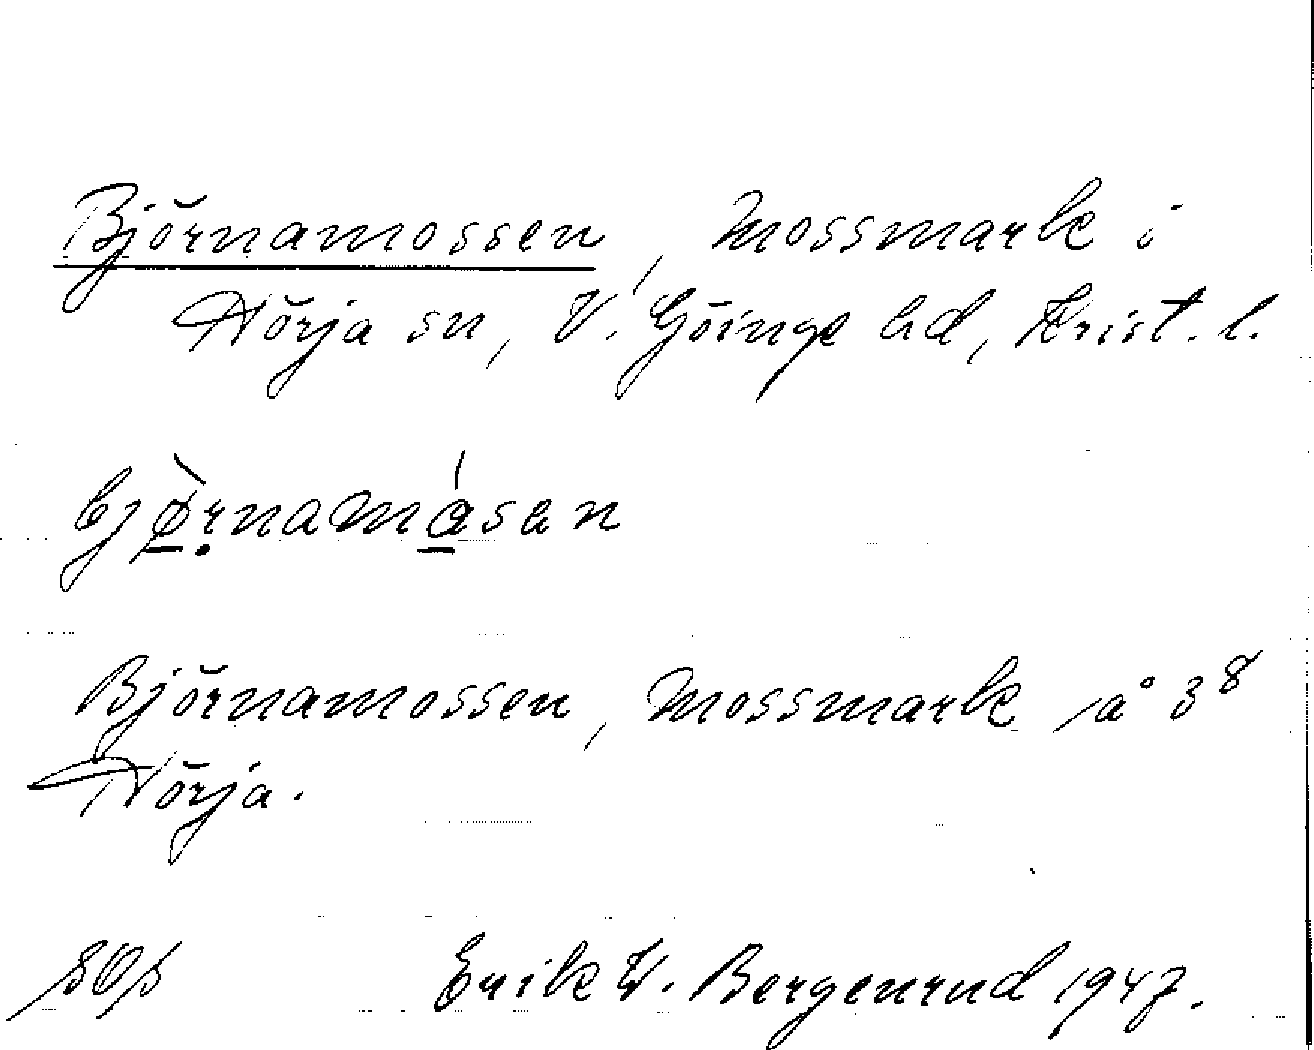 Björnamossen, Mossmark i
Nörja sn, V. Göinge hd, Krist. l.
bjørnamåsan
Björnamossen, Mossmark å 3⁸
Nörja.
Erik W. Bergenrud 1947.